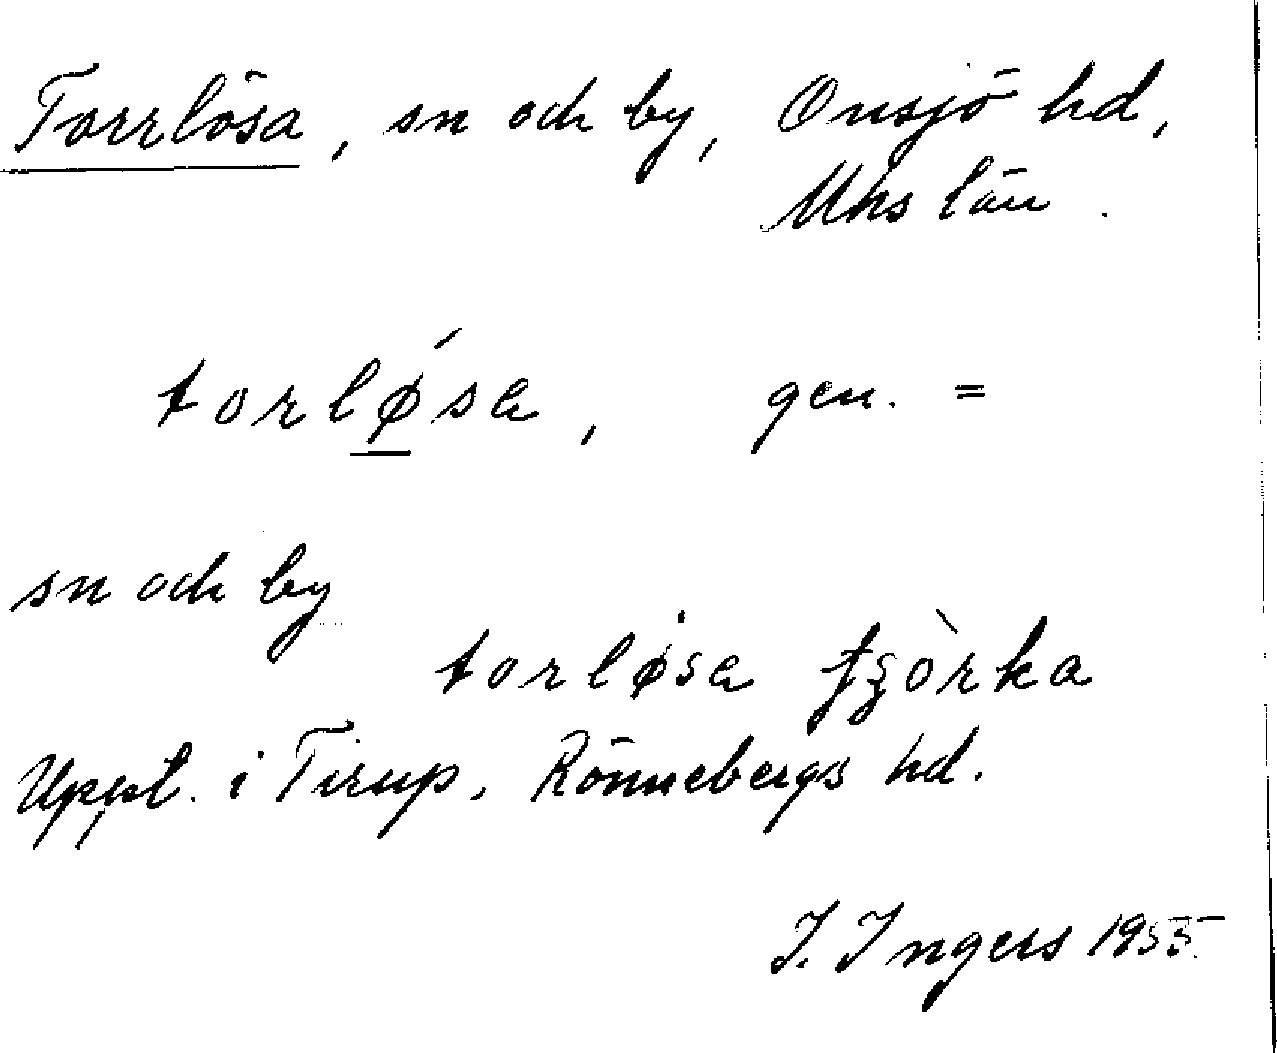 Torrlösa, sn och by, Onsjö hd,
Mhs län.
torlǿsa, gen. =
sn och by
torlǿsa fʒòrka
Uppt. i Tirup, Rönnebergs hd.
I. Ingers 1955.